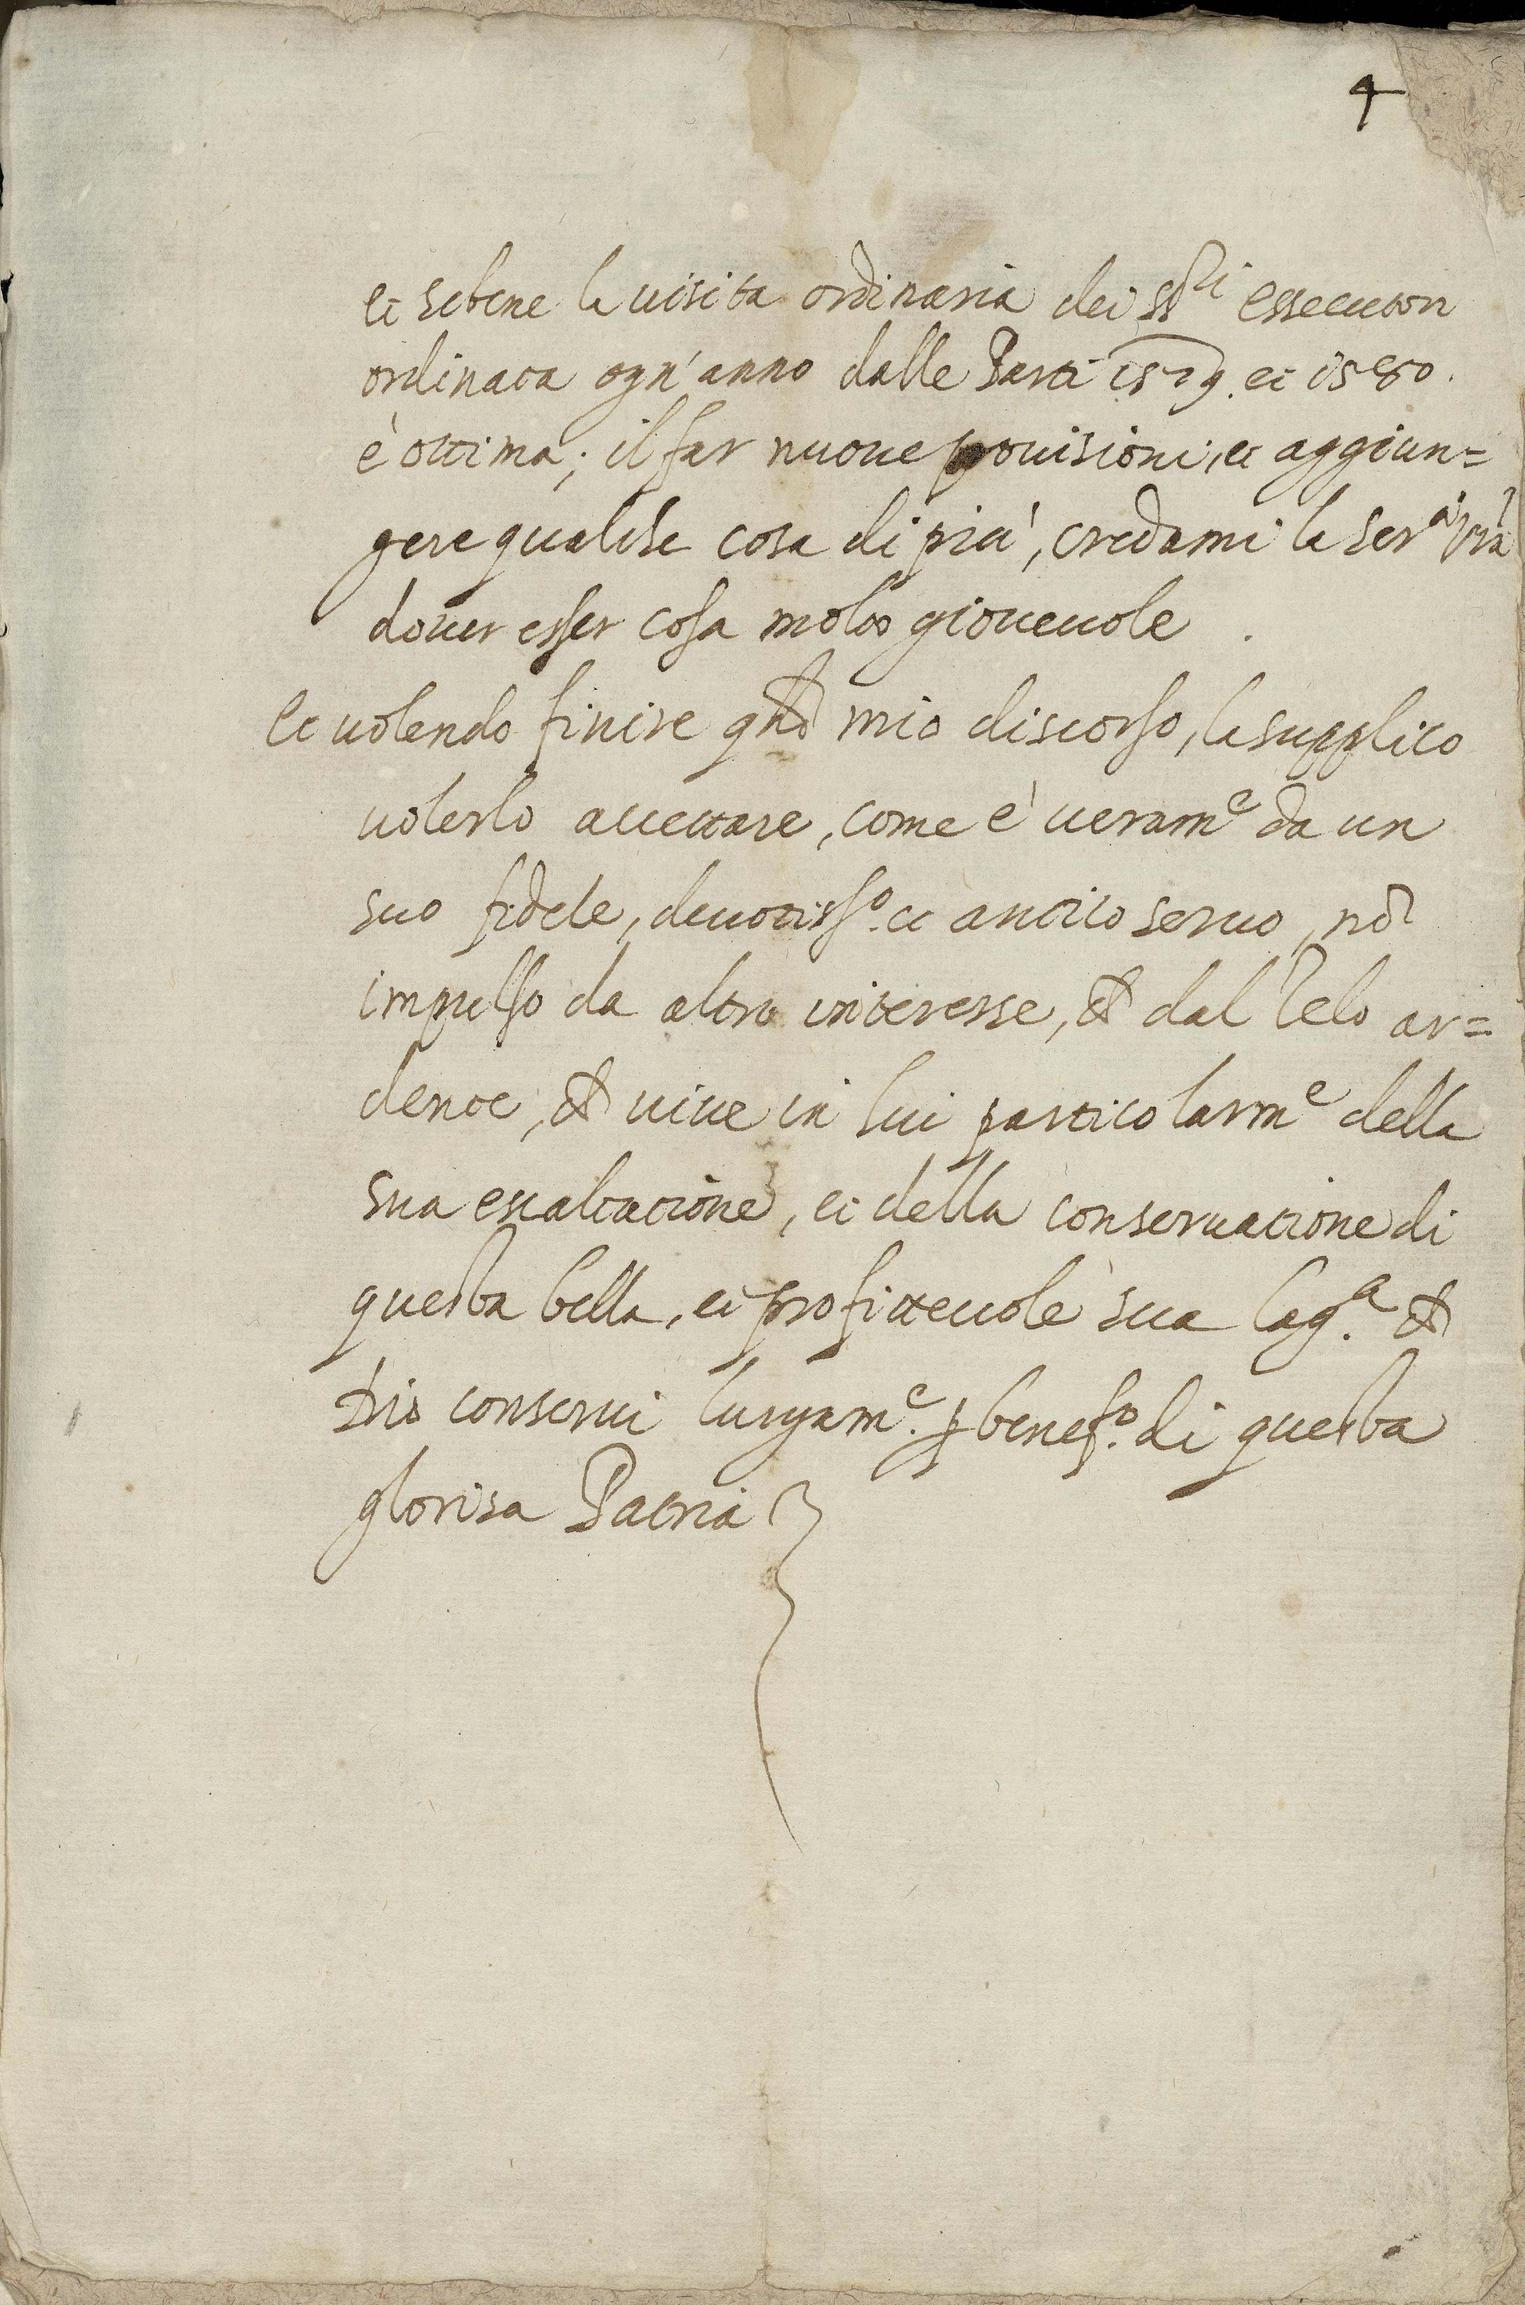 4
et sebene la uisita ordinaria dei ss.ri essecutori
ordinata ogn'anno dalle Parti 1529. et 1580.
è ottima; il far nuoue prouisioni, et aggiun=
gere qualche cosa di più, credami la Ser.a V.ra
douer esser cosa molto gioueuole.
Et uolendo finire q.to mio discorso, la supplico
uolerlo accettare, come è ueram.e da un
suo fidele, deuotiss.o et antico seruo, nō
impulso da altro interesse, ch dal Zelo ar=
dente, ch uiue in lui particolarm.e della
sua esaltatione, et della conseruatione di
questa bella, et profitteuole sua lag.a ch
Dio conserui lungam.e p benef.o di questa
gloriosa Patria